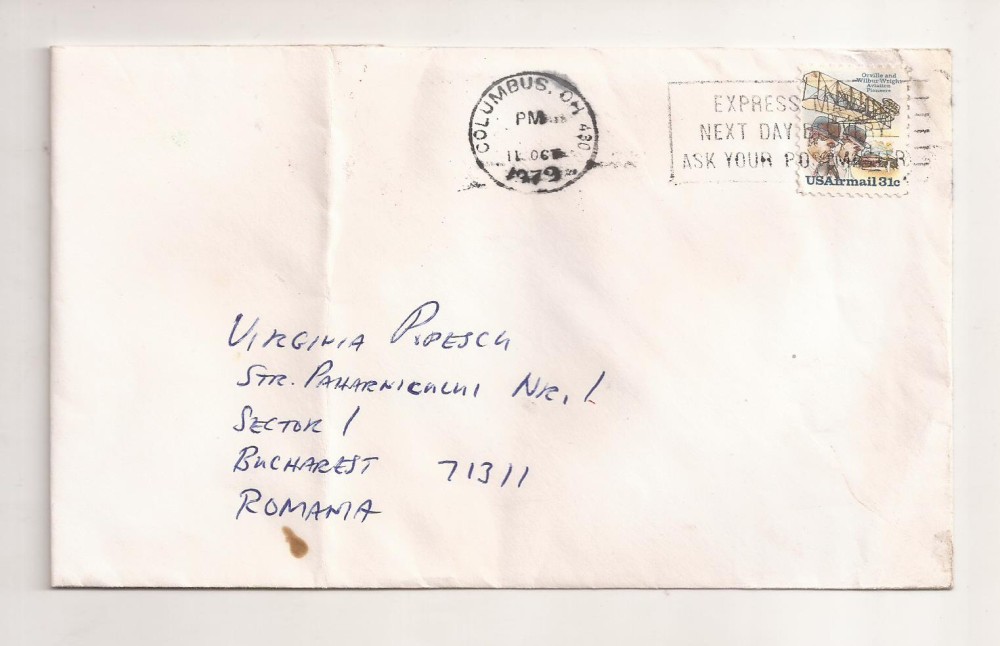 COLUMBUS, OH 430
PM
11 OCT
1979
EXPRESS MAIL
NEXT DAY DELIVERY
ASK YOUR POSTMASTER
Orville and
Wilbur Wright
Aviation
Pioneers
USAirmail 31c
VIRGINIA POPESCU
STR. PAHARNICULUI NR. 1
SECTOR 1
BUCHAREST 71311
ROMANIA